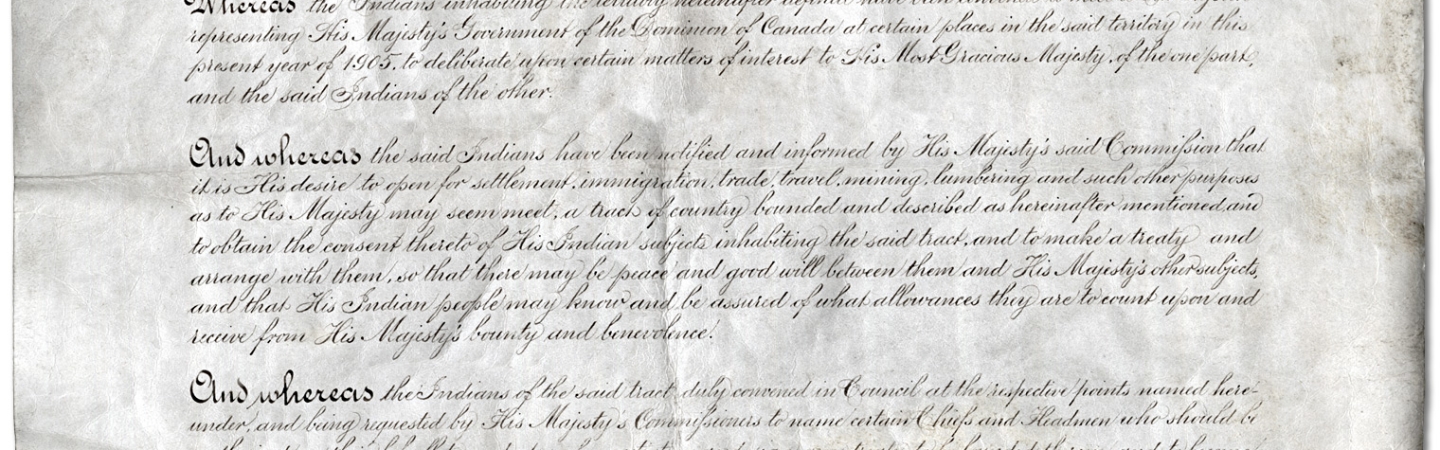 Whereas the Indians inhabiting the territory hereinafter defined have been convened to meet
representing His Majesty's Government of the Dominion of Canada at certain places in the said territory in this
present year of 1905, to deliberate upon certain matters of interest to His Most Gracious Majesty, of the one part,
and the said Indians of the other.
And whereas the said Indians have been notified and informed by His Majesty's said Commission that
it is His desire to open for settlement, immigration, trade, travel, mining, lumbering and such other purposes
as to His Majesty may seem meet, a tract of country bounded and described as hereinafter mentioned, and
to obtain the consent thereto of His Indian subjects inhabiting the said tract, and to make a treaty and
arrange with them, so that there may be peace and good will between them and His Majesty's other subjects,
and that His Indian people may know and be assured of what allowances they are to count upon and
receive from His Majesty's bounty and benevolence.
And whereas the Indians of the said tract, duly convened in Council at the respective points named here-
under, and being requested by His Majesty's Commissioners to name certain Chiefs and Headmen who should be